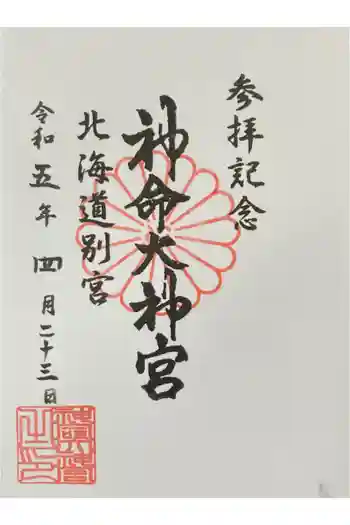 参拝記念
神命大神宮
北海道別宮
令和五年四月二十三日